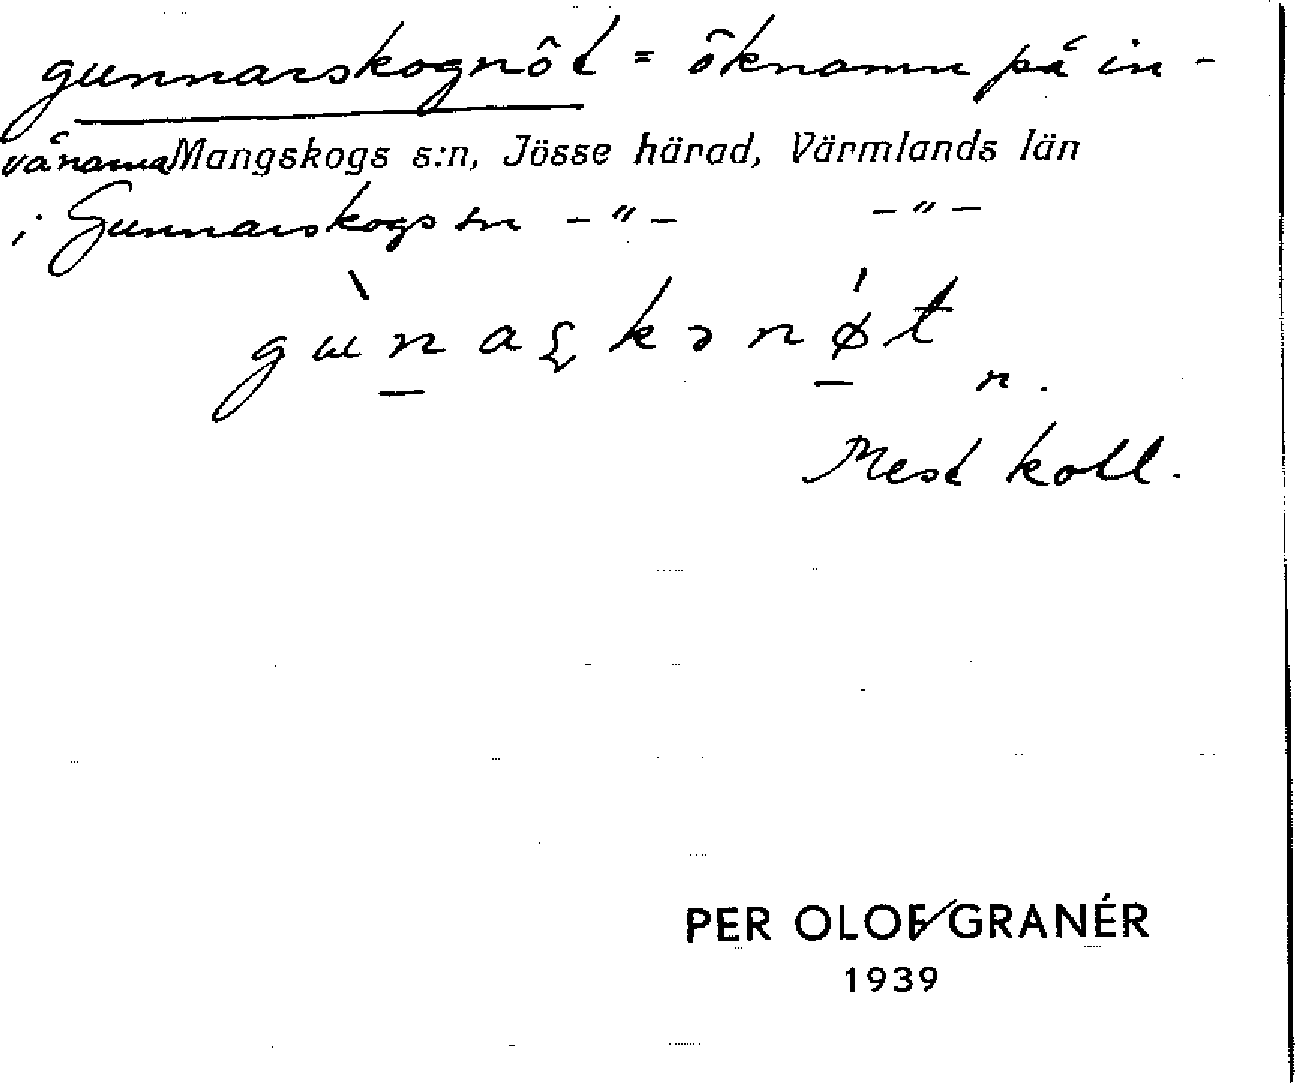 gunnarskognôt = ôknamn på in-
vånarna Mangskogs s:n, Jösse härad, Värmlands län
i Gunnarskogs sn – " – – " –
n.
Mest koll.
PER OLOF GRANÉR
1939